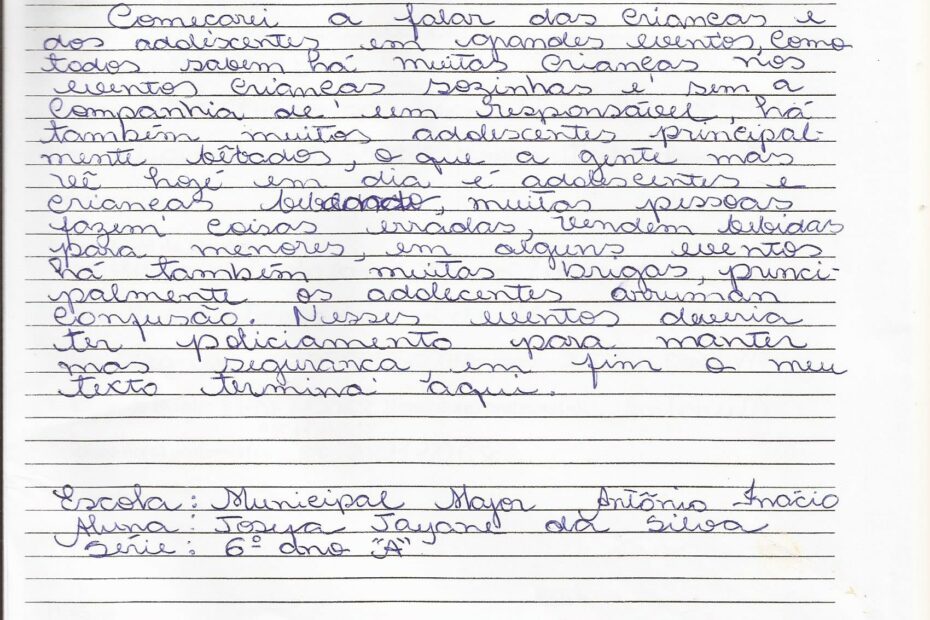 Começarei a falar das crianças e
dos adolescentes em grandes eventos, como
todos sabem há muitas crianças nos
eventos crianças sozinhas e sem a
companhia de um responsável, há
também muitos adolescentes principal-
mente bêbados, o que a gente mas
vê hoje em dia é adolescentes e
crianças muitas pessoas
fazem coisas erradas, vendem bebidas
para menores, em alguns eventos
há também muitas brigas, princi-
palmente os adolecentes arrumam
confusão. Nesses eventos deveria
ter policiamento para manter
mas seguranca, em fim o meu
texto termina aqui.
Escola: Municipal Major Antônio Inácio
Aluna: Jayane da Silva
Série: 6º ano "A"